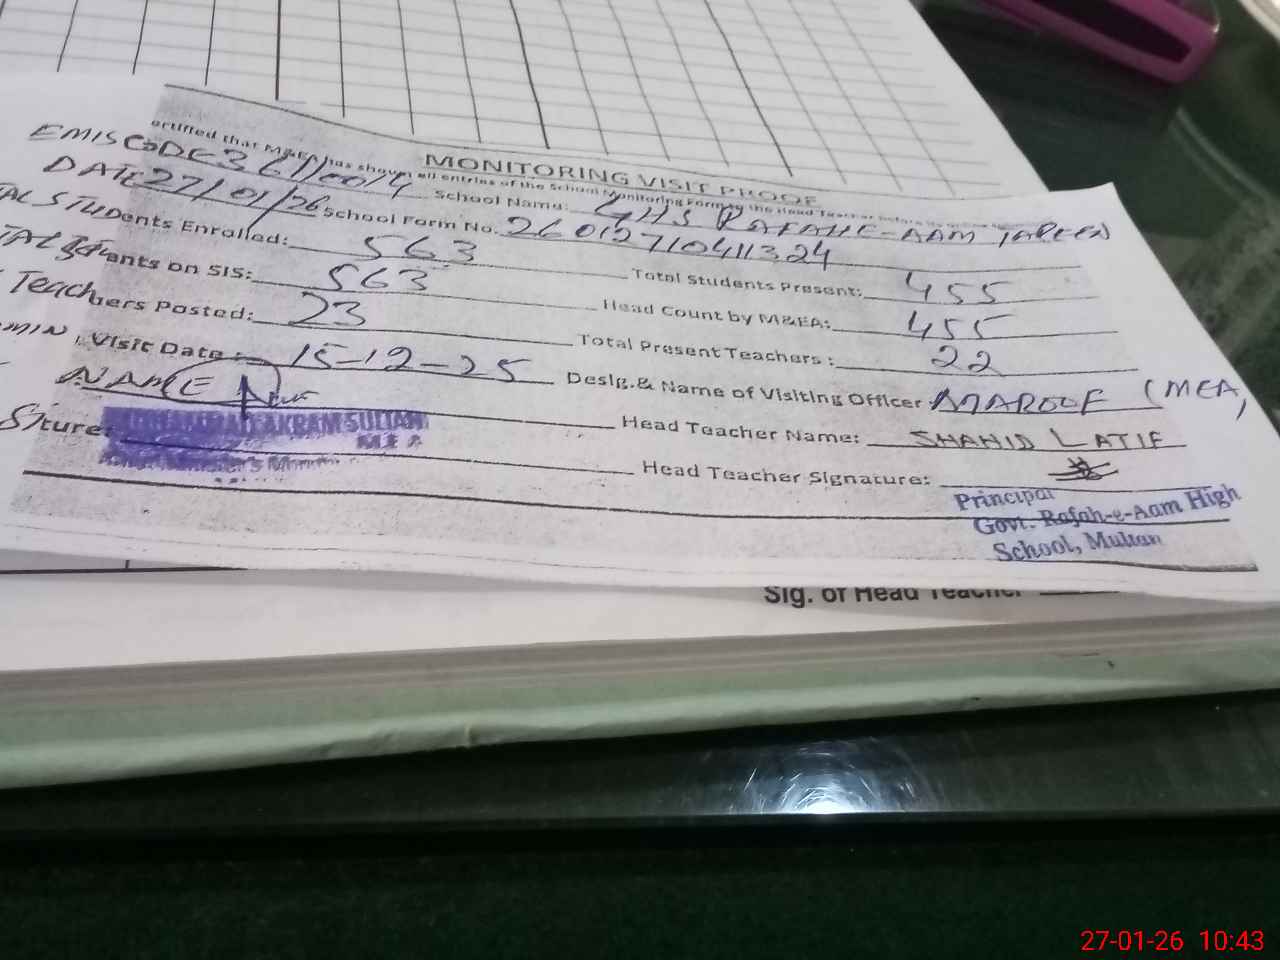 MONITORING VISIT PROOF
ertified that M&EA has shown all entries of the School Monitoring Form to the Head Teacher before
EMIS CODE 36110014 School Name: GHS RAFAHE-AAM
DATE 27/01/26 School Form No. 26012710411324
TAL STUDents Enrolled: 563 Total Students Present: 455
on SIS: 563 Head Count by M&EA: 455
Teachers Posted: 23 Total Present Teachers: 22
MIN. Visit Date 15-12-25 Desig.& Name of Visiting Officer MAROOF (MEA,
NAME Head Teacher Name: SHAHID LATIF
AKRAM SULTAN
MEA
ture: Head Teacher Signature:
Principal
Govt. Rafah-e-Aam High
School, Multan
Sig. of Head Teacher
27-01-26 10:43